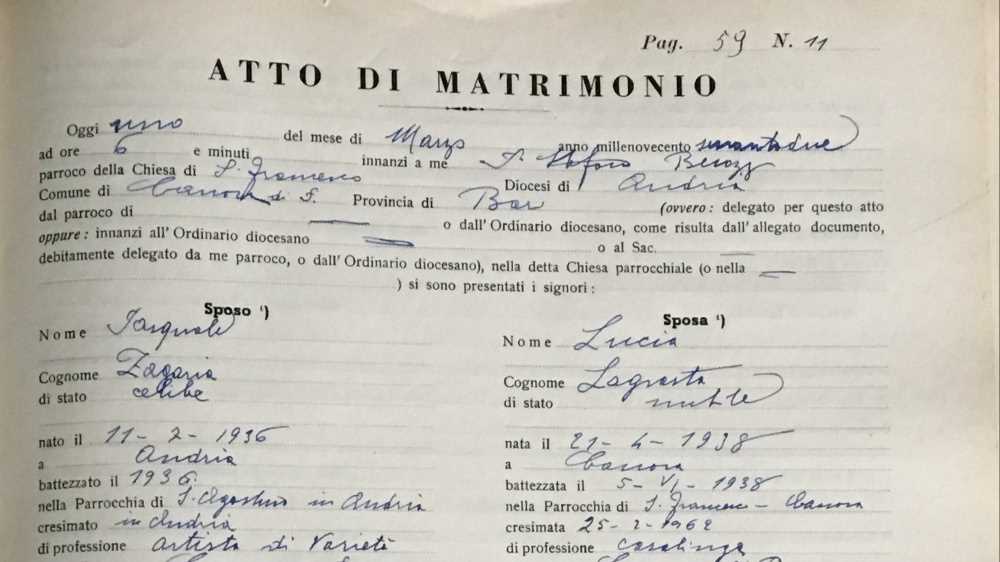 Pag. 59 N. 11
ATTO DI MATRIMONIO
Oggi uno del mese di Marzo anno millenovecento sessantadue
ad ore 6 e minuti innanzi a me
parroco della Chiesa di S. Francesco Diocesi di Andria
Comune di Canosa di P. Provincia di Bari (ovvero: delegato per questo atto
dal parroco di — o dall'Ordinario diocesano, come risulta dall'allegato documento,
oppure: innanzi all'Ordinario diocesano — o al Sac. —
debitamente delegato da me parroco, o dall'Ordinario diocesano), nella detta Chiesa parrocchiale (o nella —
) si sono presentati i signori:
Sposo ¹)
Nome Pasquale
Cognome Zagaria
di stato celibe
nato il 11 - 2 - 1936
a Andria
battezzato il 1936
nella Parrocchia di S. Agostino in Andria
cresimato in Andria
di professione Artista di Varietà
Sposa ¹)
Nome Lucia
Cognome Lagrasta
di stato nubile
nata il 21 - 4 - 1938
a Canosa
battezzata il 5 - VI - 1938
nella Parrocchia di S. Francesco - Canosa
cresimata 25 - 2 - 1962
di professione casalinga